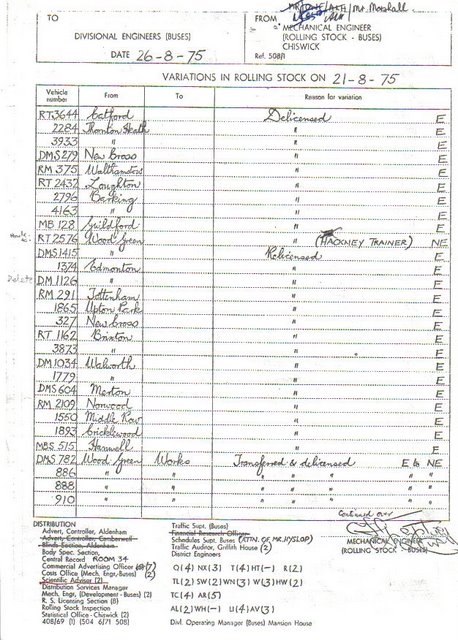 TO
DIVISIONAL ENGINEERS (BUSES)
DATE 26-8-75
Mr. Marshall
FROM
MECHANICAL ENGINEER
(ROLLING STOCK - BUSES)
CHISWICK
Ref. 508/1
VARIATIONS IN ROLLING STOCK ON 21-8-75
Vehicle number From To Reason for variation
RT3644 Catford Delicensed E
2284 Thornton Heath " E
3933 " " E
DMS 279 New Cross " E
RM 375 Walthamstow " E
RT 2432 Loughton " E
2796 Barking " E
4163 " " E
MB 128 Guildford " E
RT 2576 Wood Green " (HACKNEY TRAINER) NE
DMS1415 " Relicensed E
1374 Edmonton " E
Delete DM 1126 " " E
RM 291 Tottenham " E
1865 Upton Park " E
327 New Cross " E
RT 1162 Brixton " E
3873 " " E
DM 1034 Walworth " E
1779 " " E
DMS 604 Merton " E
RM 2109 Norwood " E
1550 Middle Row " E
1893 Cricklewood " E
MBS 515 Hanwell " E
DMS 782 Wood Green Works Transferred & delicensed E to NE
886 " " " " " " "
888 " " " " " " "
910 " " " " " " "
Continued over
MECHANICAL ENGINEER
(ROLLING STOCK - BUSES)
DISTRIBUTION
Advert. Controller, Aldenham
Advert. Controller, Camberwell
Blind Section, Aldenham
Body Spec. Section,
Central Record ROOM 34
Commercial Advertising Officer (7)
Costs Office (Mech. Engr-Buses) (2)
Scientific Adviser (2)
Distribution Services Manager
Mech. Engr, (Development-Buses) (2)
R.S. Licensing Section (8)
Rolling Stock Inspection
Statistical Office-Chiswick (2)
408/69 (1) (504 6/71 508)
Traffic Supt. (Buses)
Financial Research Officer
Schedules Supt. Buses (ATTN. OF MR. HYSLOP)
Traffic Auditor, Griffith House (2)
District Engineers
Q(4) NX(3) T(4) HT(-) R(2)
TL(2) SW(2) WN(3) W(3) HW(2)
TC(4) AR(5)
AL(2) WH(-) U(4) AV(3)
Divl. Operating Manager (Buses) Mansion House